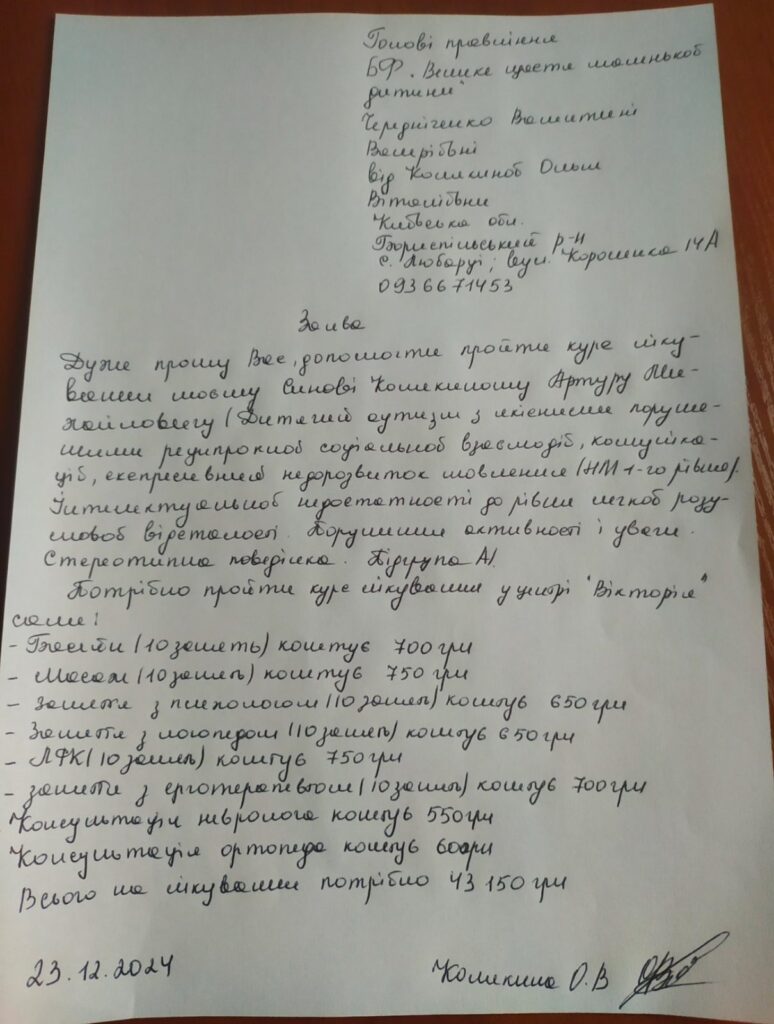 Голові правління
БФ "Велике щастя маленької
дитини"
Чередніченко Валентині
Валеріївні
від Колякіної Ольги
Віталіївни
Київська обл.
Бориспільський р-н
с. Любарці, вул. Короленка 14А
0936671453
Заява
Дуже прошу Вас, допомогти пройти курс ліку-
вання моєму синові Колякіному Артуру Ми-
хайловичу (Дитячий аутизм з якісними поруше-
ннями реципрокної соціальної взаємодії, комуніка-
ції, експресивний недорозвиток мовлення (НМ 1-го рівня).
Інтелектуальної недостатності до рівня легкої розу-
мової відсталості. Порушення активності і уваги.
Стереотипна поведінка. Підгрупа А).
Потрібно пройти курс лікування у центрі "Вікторія"
саме:
- Басейн (10 занять) коштує 700 грн
- Масаж (10 занять) коштує 750 грн
- Заняття з психологом (10 занять) коштує 650 грн
- Заняття з логопедом (10 занять) коштує 650 грн
- ЛФК (10 занять) коштує 750 грн
- заняття з ерготерапевтом (10 занять) коштує 700 грн
Консультація невролога коштує 550 грн
Консультація ортопеда коштує 600 грн
Всього на лікування потрібно 43 150 грн
23.12.2024 Колякіна О.В